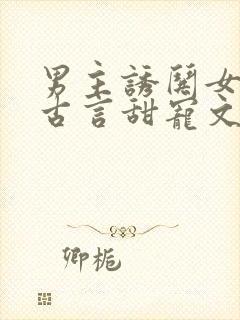 男主誘鬨女
古言甜寵文
卿栀